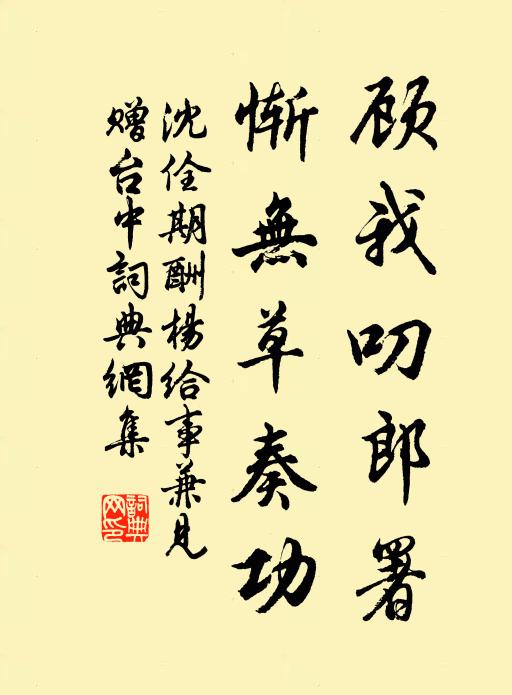 顾我叨郎署
惭無草奏功
沈佺期酬楊给事兼見
赠台中詞典網集
詞典網印